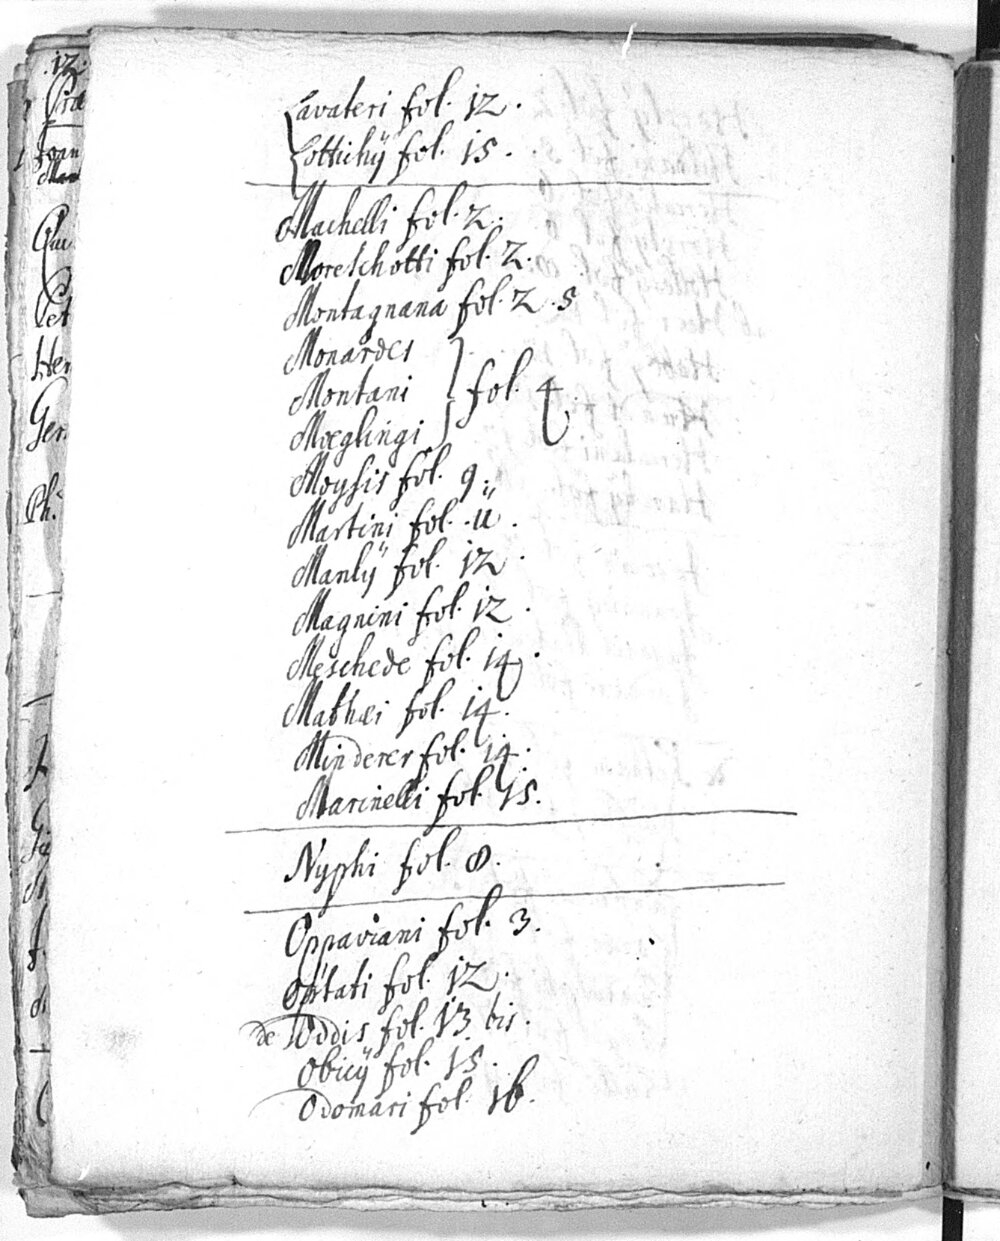 Lavateri fol. 12.
Lottichÿ fol. 15.
Machelli fol. 2.
Moreschotti fol. 2.
Montagnana fol. 2. 5
Monardes
Montani } fol. 4.
Mœglingi
Moysis fol. 9.
Martini fol. 11.
Manlÿ fol. 12.
Magnini fol. 12.
Meschede fol. 14.
Mathæi fol. 14.
Minderer fol. 14.
Marinelli fol. 15.
Nyphi fol. 8.
Oppaviani fol. 3.
Optati fol. 12.
de Oddis fol. 13 bis.
Obicÿ fol. 15.
Odomari fol. 16.
12.
Joan
Pet
Her
Ger
Ph.